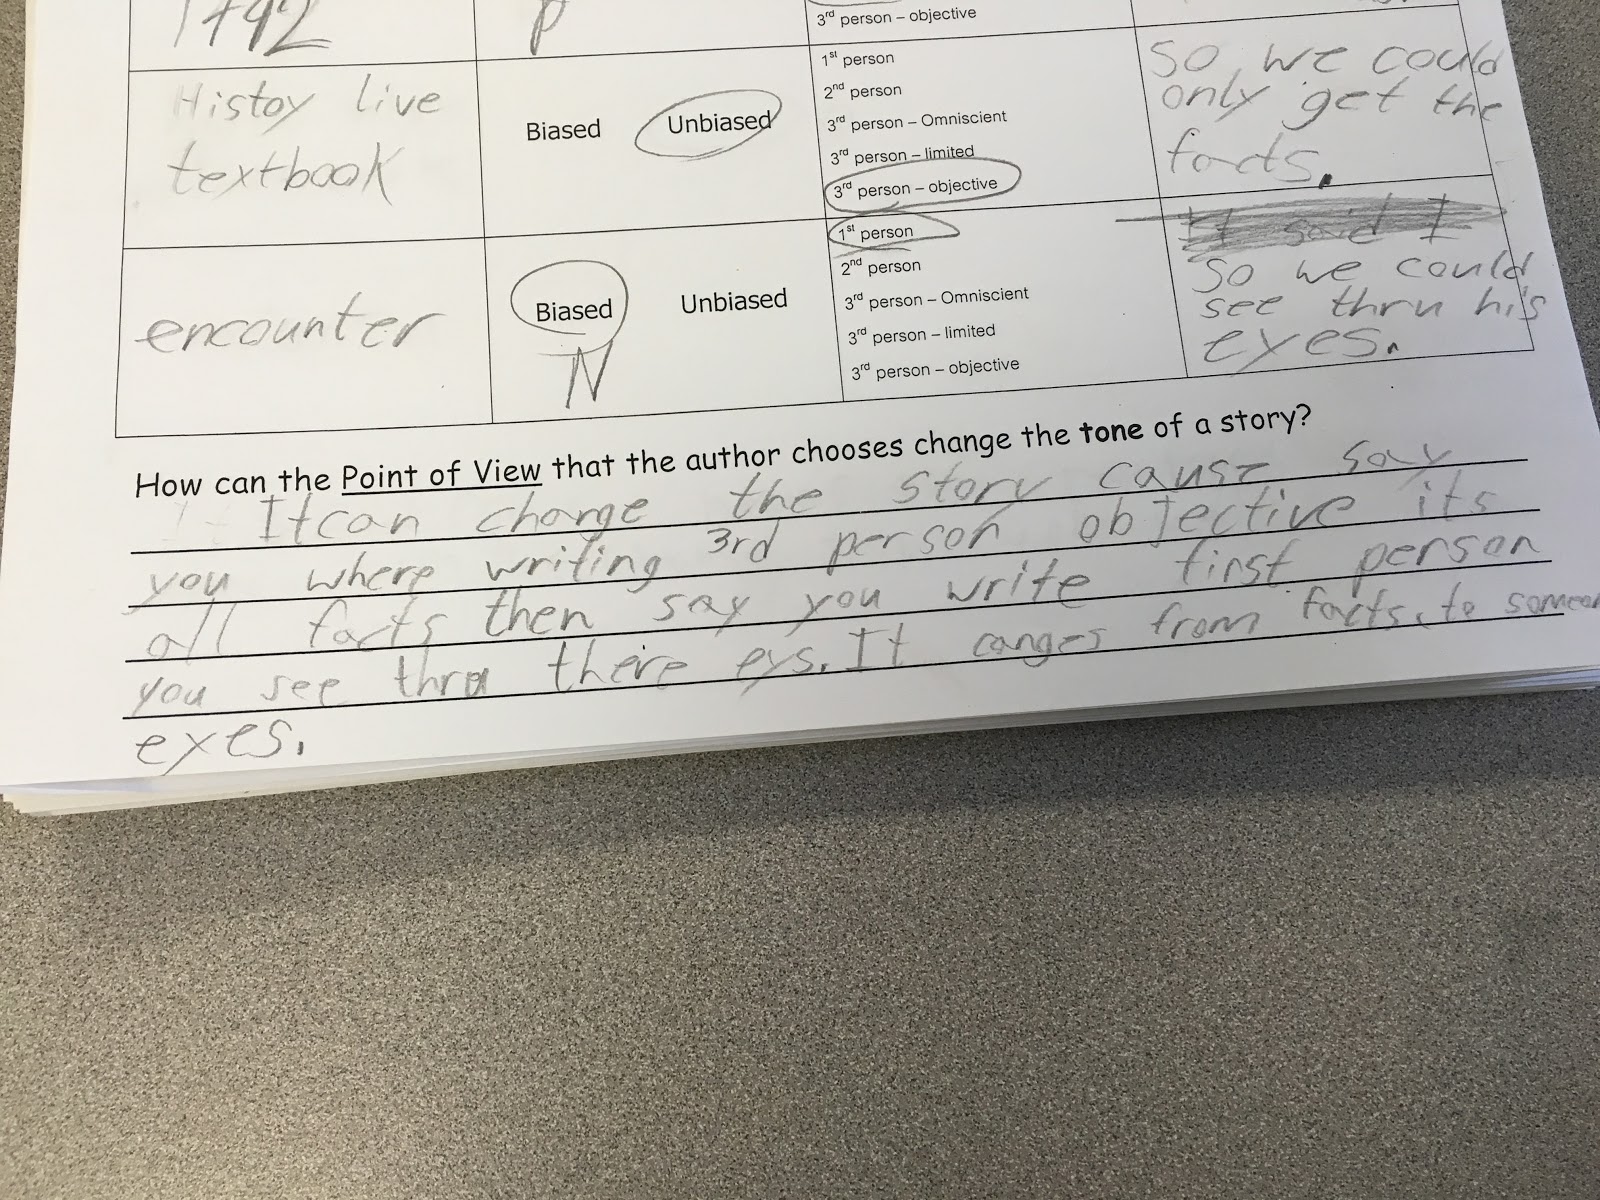 1492
P
3rd person – objective
Histoy live
textbook
Biased Unbiased
1st person
2nd person
3rd person – Omniscient
3rd person – limited
3rd person – objective
So we could
only get the
facts.
encounter
Biased Unbiased
N
1st person
2nd person
3rd person – Omniscient
3rd person – limited
3rd person – objective
It said I
So we could
see thru his
eyes.
How can the Point of View that the author chooses change the tone of a story?
It can change the story cause say
you where writing 3rd person objective its
all facts then say you write first person
you see thru there eys. It canges from facts, to
eyes.